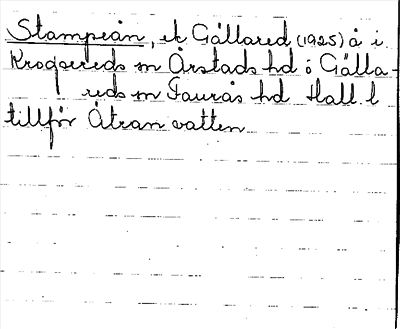 Stampeån, ek Gällared (1925) å i
Krogsereds sn Årstads hd o Gälla-
reds sn Faurås hd Hall. l
tillför Ätran vatten